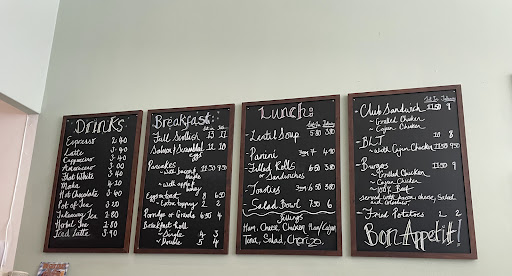 Drinks
Espresso 2.40
Latte 3.40
Cappuccino 3.40
Americano 3.00
Flat White 3.40
Moka 4.20
Hot Chocolate 3.40
Pot of Tea 2.20
Takeaway Tea 2.80
Herbal Tea 2.80
Iced Latte 3.40
Breakfast:
Full Scottish 13 11
Salmon/Scrambled 12 10
eggs
Pancakes 11.50 9.50
~ with bacon/
maple
~ with apple/
honey
8 6.50
2 2
Porridge or Granola 6.50 4
Breakfast Roll
~ Single 4 3
~ Double 5 4
Lunch:
~ Lentil Soup 5.80 3.80
~ Panini from 7 4.50
~ Filled Rolls 6.50 3.80
or Sandwiches
~ Toasties from 6.50 3.80
~ Salad Bowl 7.50 6
Fillings
Ham, Cheese, Chicken Mayo/Cajun
Tuna, Salad, Chorizo
~ Club Sandwich 11.50 9
~ Grilled Chicken
~ Cajun Chicken
~ BLT 10 8
~ with Cajun Chicken 11.50 9.50
~ Burger 11.50 9
~ Grilled Chicken
~ Cajun Chicken
~ 100% Beef
served with bacon, cheese, Salad
and coleslaw
~ Fried Potatoes 2 2
Bon Appetit!